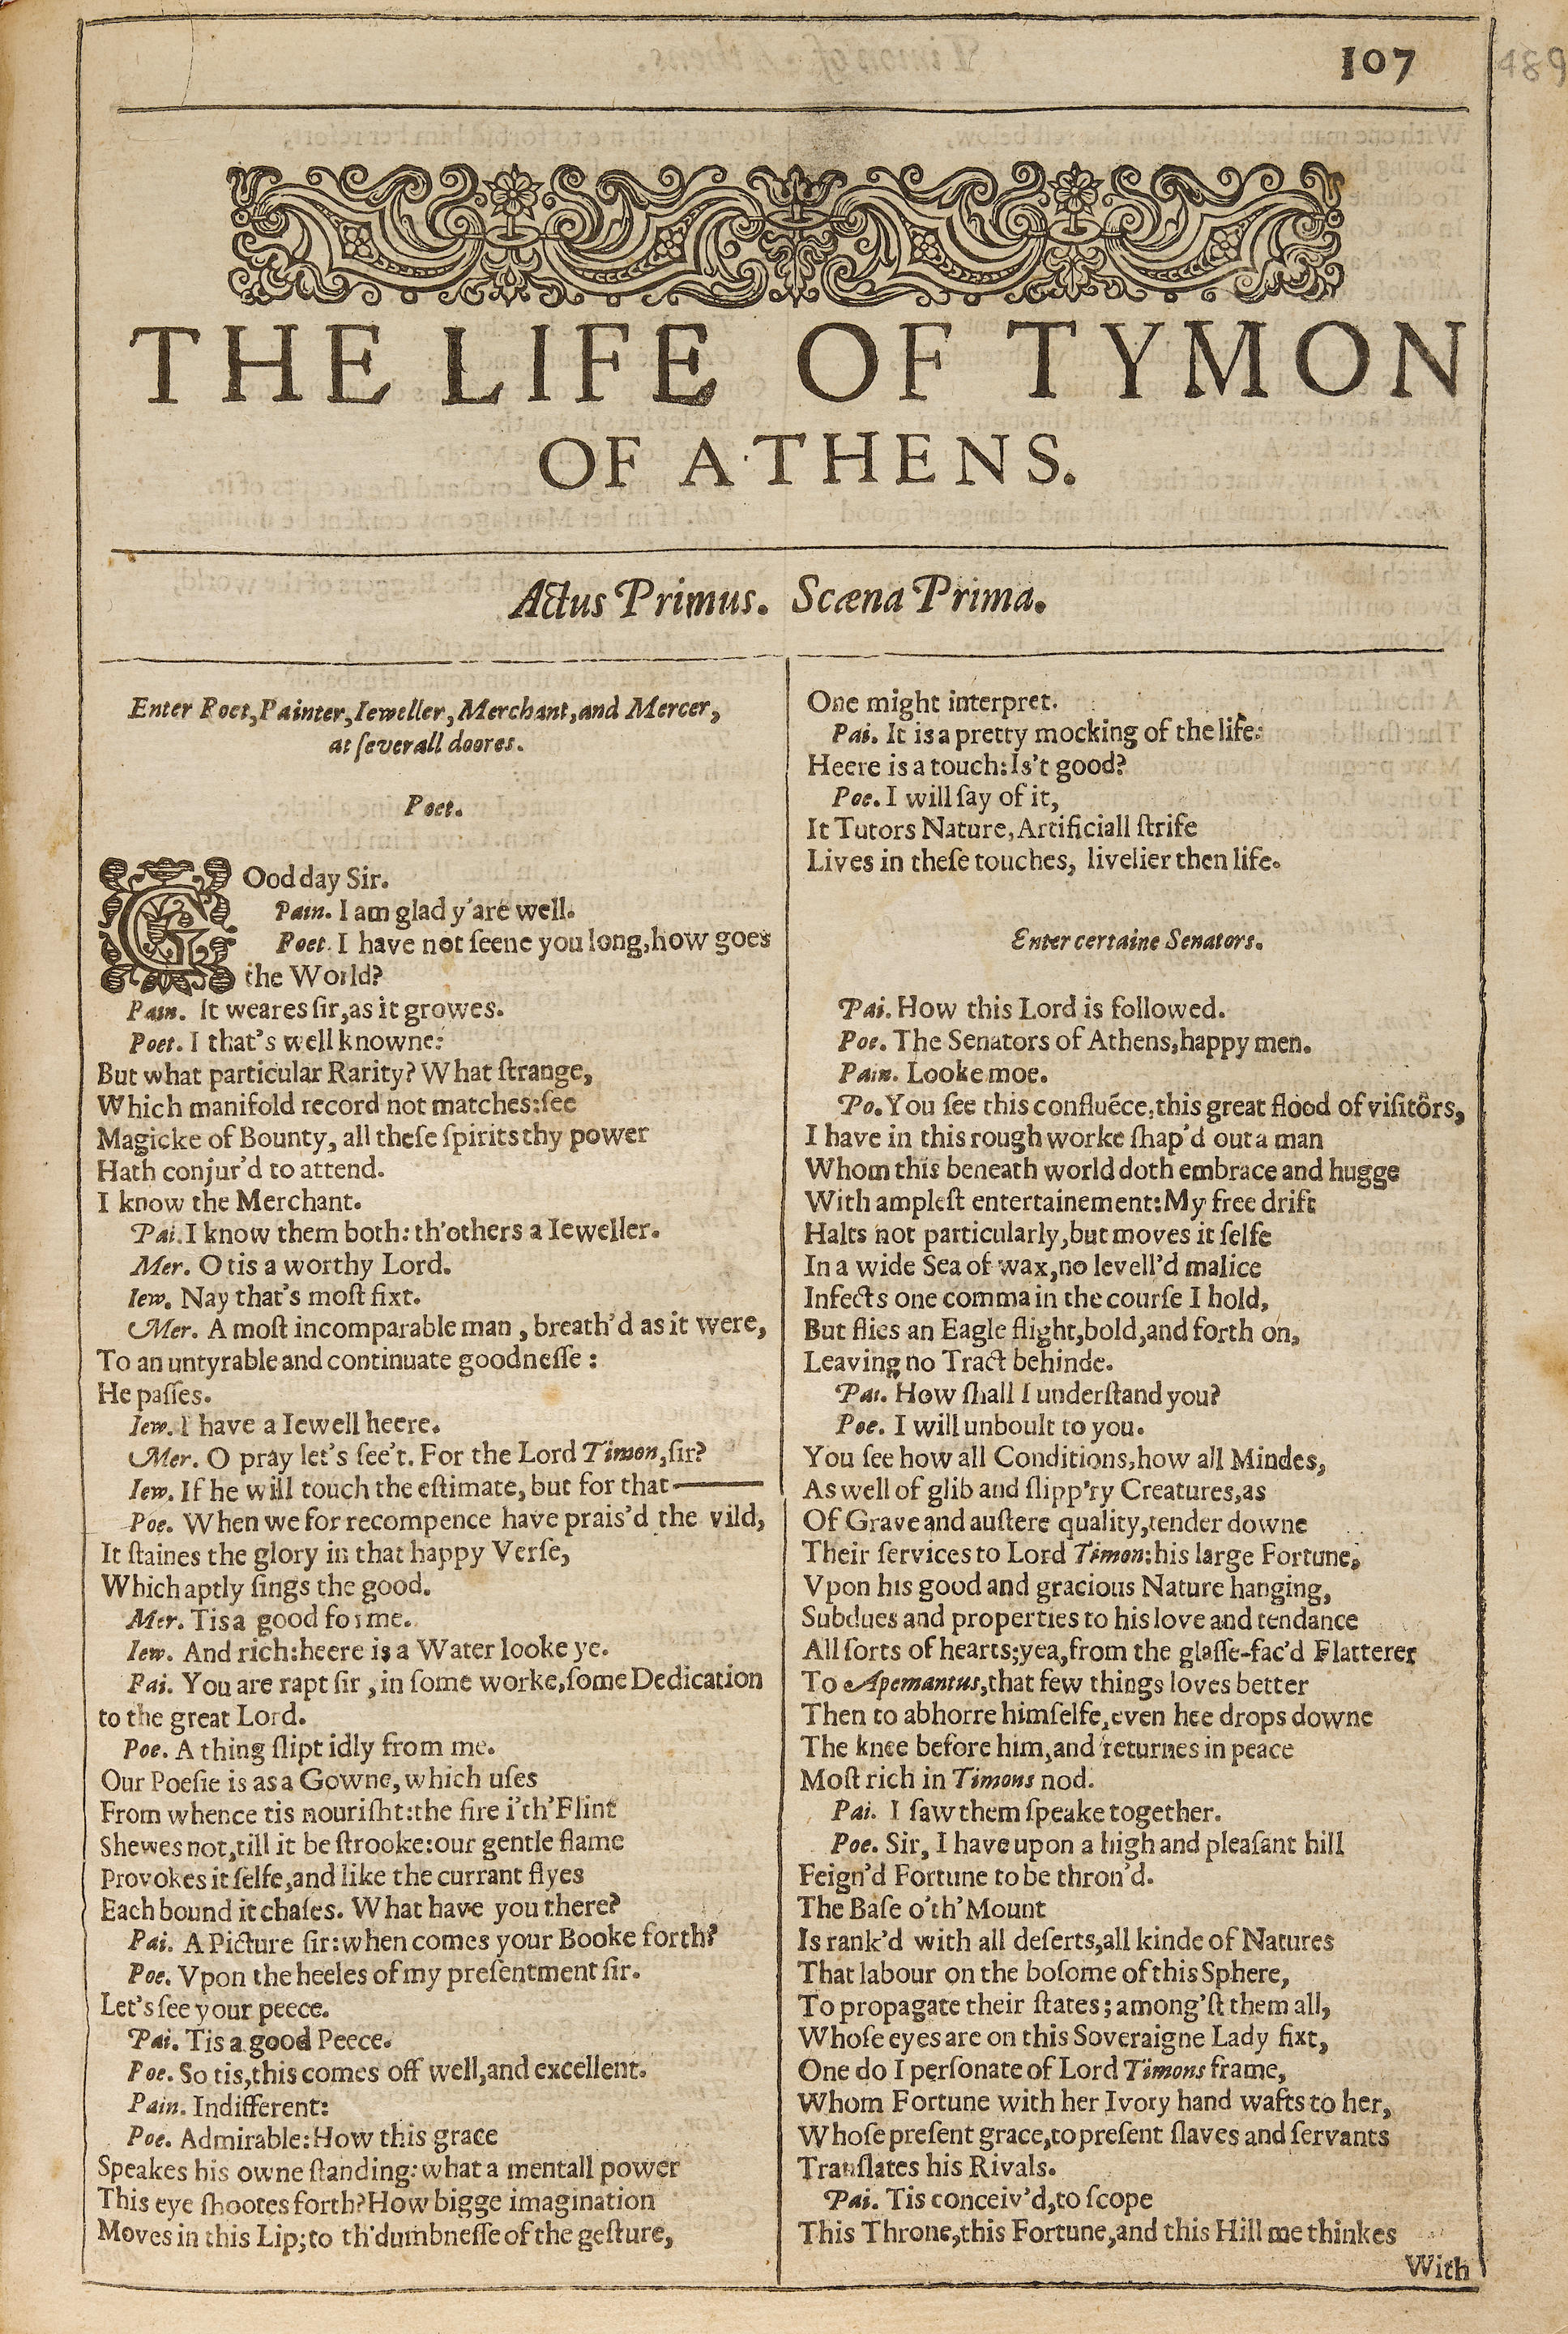 107
489
THE LIFE OF TYMON
OF ATHENS.
Actus Primus. Scæna Prima.
Enter Poet, Painter, Ieweller, Merchant, and Mercer,
at ſeverall doores.
Poet.
GOod day Sir.
Pain. I am glad y'are well.
Poet. I have not ſeene you long, how goes
the World?
Pain. It weares ſir, as it growes.
Poet. I that's well knowne:
But what particular Rarity? What ſtrange,
Which manifold record not matches: ſee
Magicke of Bounty, all theſe ſpirits thy power
Hath conjur'd to attend.
I know the Merchant.
Pai. I know them both: th'others a Ieweller.
Mer. O tis a worthy Lord.
Iew. Nay that's moſt fixt.
Mer. A moſt incomparable man, breath'd as it were,
To an untyrable and continuate goodneſſe:
He paſſes.
Iew. I have a Iewell heere.
Mer. O pray let's ſee't. For the Lord Timon, ſir?
Iew. If he will touch the eſtimate, but for that——
Poe. When we for recompence have prais'd the vild,
It ſtaines the glory in that happy Verſe,
Which aptly ſings the good.
Mer. Tis a good forme.
Iew. And rich: heere is a Water looke ye.
Pai. You are rapt ſir, in ſome worke, ſome Dedication
to the great Lord.
Poe. A thing ſlipt idly from me.
Our Poeſie is as a Gowne, which uſes
From whence tis nouriſht: the fire i'th'Flint
Shewes not, till it be ſtrooke: our gentle flame
Provokes it ſelfe, and like the currant flyes
Each bound it chaſes. What have you there?
Pai. A Picture ſir: when comes your Booke forth?
Poe. Vpon the heeles of my preſentment ſir.
Let's ſee your peece.
Pai. Tis a good Peece.
Poe. So tis, this comes off well, and excellent.
Pain. Indifferent:
Poe. Admirable: How this grace
Speakes his owne ſtanding: what a mentall power
This eye ſhootes forth? How bigge imagination
Moves in this Lip; to th'dumbneſſe of the geſture,
One might interpret.
Pai. It is a pretty mocking of the life:
Heere is a touch: Is't good?
Poe. I will ſay of it,
It Tutors Nature, Artificiall ſtrife
Lives in theſe touches, livelier then life.
Enter certaine Senators.
Pai. How this Lord is followed.
Poe. The Senators of Athens, happy men.
Pain. Looke moe.
Po. You ſee this confluēce, this great flood of viſitôrs,
I have in this rough worke ſhap'd out a man
Whom this beneath world doth embrace and hugge
With ampleſt entertainement: My free drift
Halts not particularly, but moves it ſelfe
In a wide Sea of wax, no levell'd malice
Infects one comma in the courſe I hold,
But flies an Eagle flight, bold, and forth on,
Leaving no Tract behinde.
Pai. How ſhall I underſtand you?
Poe. I will unboult to you.
You ſee how all Conditions, how all Mindes,
As well of glib and ſlipp'ry Creatures, as
Of Grave and auſtere quality, tender downe
Their ſervices to Lord Timon: his large Fortune,
Vpon his good and gracious Nature hanging,
Subdues and properties to his love and tendance
All ſorts of hearts; yea, from the glaſſe-fac'd Flatterer
To Apemantus, that few things loves better
Then to abhorre himſelfe, even hee drops downe
The knee before him, and returnes in peace
Moſt rich in Timons nod.
Pai. I ſaw them ſpeake together.
Poe. Sir, I have upon a high and pleaſant hill
Feign'd Fortune to be thron'd.
The Baſe o'th'Mount
Is rank'd with all deſerts, all kinde of Natures
That labour on the boſome of this Sphere,
To propagate their ſtates; among'ſt them all,
Whoſe eyes are on this Soveraigne Lady fixt,
One do I perſonate of Lord Timons frame,
Whom Fortune with her Ivory hand wafts to her,
Whoſe preſent grace, to preſent ſlaves and ſervants
Tranſlates his Rivals.
Pai. Tis conceiv'd, to ſcope
This Throne, this Fortune, and this Hill me thinkes
With